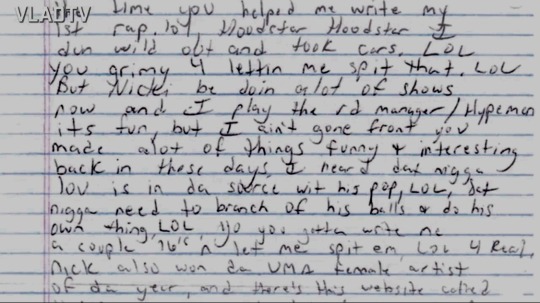 VLADTV
time you helped me write my
1st rap. lol, Hoodstar Hoodstar I
dun wild out and took cars. LOL
you grimy 4 lettin me spit that. LOL
But Nicki be doin alot of shows
now and I play the rd manager/Hypeman
its fun, but I ain't gone front you
made alot of things funny & interesting
back in these days, I heard dat nigga
lou is in da source wit his pop, LOL, dat
nigga need to branch of his balls & do his
own thing, LOL, yo you gotta write me
a couple 16's n let me spit em, LOL 4 Real,
Nick also won da VMA female artist
of da year, and there's this website called